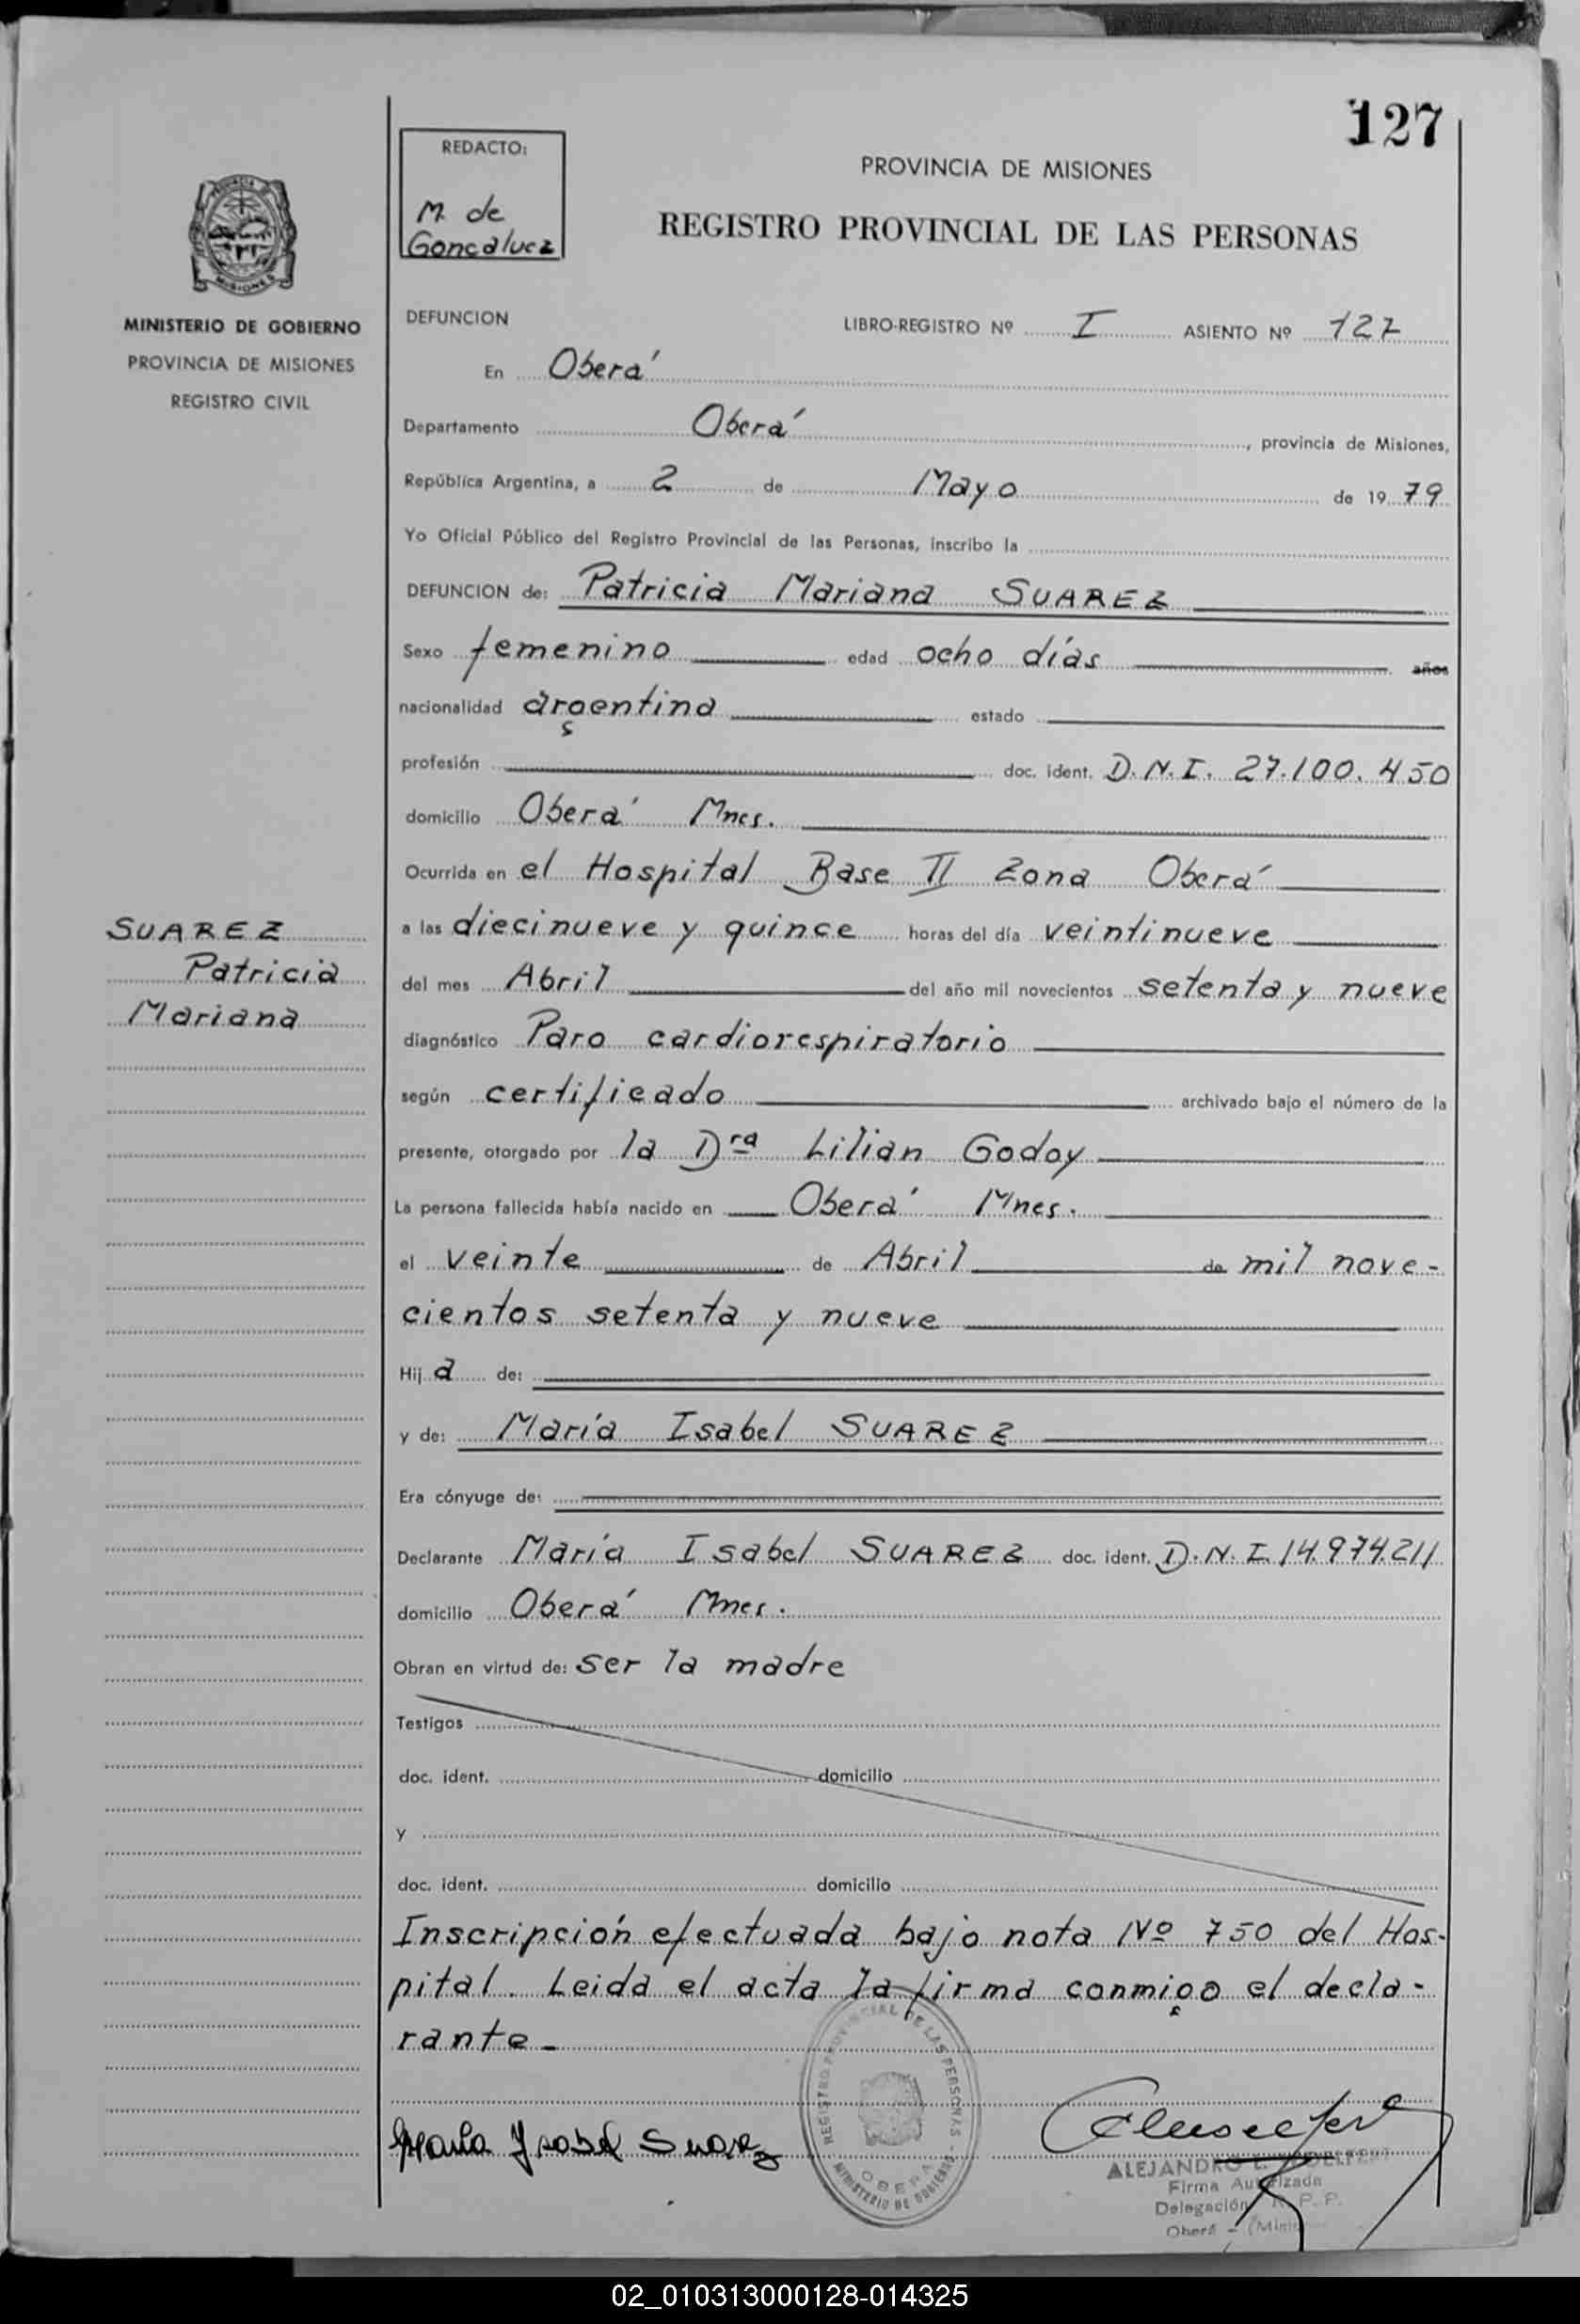 127
REDACTO:
M. de
Goncalvez
PROVINCIA DE MISIONES
REGISTRO PROVINCIAL DE LAS PERSONAS
MISIONES
MINISTERIO DE GOBIERNO
PROVINCIA DE MISIONES
REGISTRO CIVIL
DEFUNCION LIBRO-REGISTRO Nº I ASIENTO Nº 127
En Oberá
Departamento Oberá, provincia de Misiones,
República Argentina, a 2 de Mayo de 1979
Yo Oficial Público del Registro Provincial de las Personas, inscribo la
DEFUNCION de: Patricia Mariana SUAREZ
Sexo femenino edad ocho días años
nacionalidad argentina estado
profesión doc. ident. D.N.I. 27.100.450
domicilio Oberá Mnes.
Ocurrida en el Hospital Base II Zona Oberá
a las diecinueve y quince horas del día veintinueve
del mes Abril del año mil novecientos setenta y nueve
diagnóstico Paro cardiorespiratorio
según certificado archivado bajo el número de la
presente, otorgado por la Dra Lilian Godoy
La persona fallecida había nacido en Oberá Mnes.
el veinte de Abril de mil nove-
cientos setenta y nueve
Hij a de:
y de: María Isabel SUAREZ
Era cónyuge de:
Declarante María Isabel SUAREZ doc. ident. D.N.I. 14.974.211
domicilio Oberá Mnes.
Obran en virtud de: ser la madre
Testigos
doc. ident. domicilio
y
doc. ident. domicilio
Inscripción efectuada bajo nota Nº 750 del Hos-
pital. Leida el acta la firma conmigo el decla-
rante-
SUAREZ
Patricia
Mariana
REGISTRO PROVINCIAL DE LAS PERSONAS - MINISTERIO DE GOBIERNO
OBERA
María Ysabel Suarez
ALEJANDRO L.
Firma Autorizada
Delegación R. P. P.
Oberá - (Mnes
02_010313000128-014325